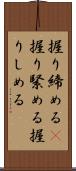 握り締める
握り緊める握
りしめる